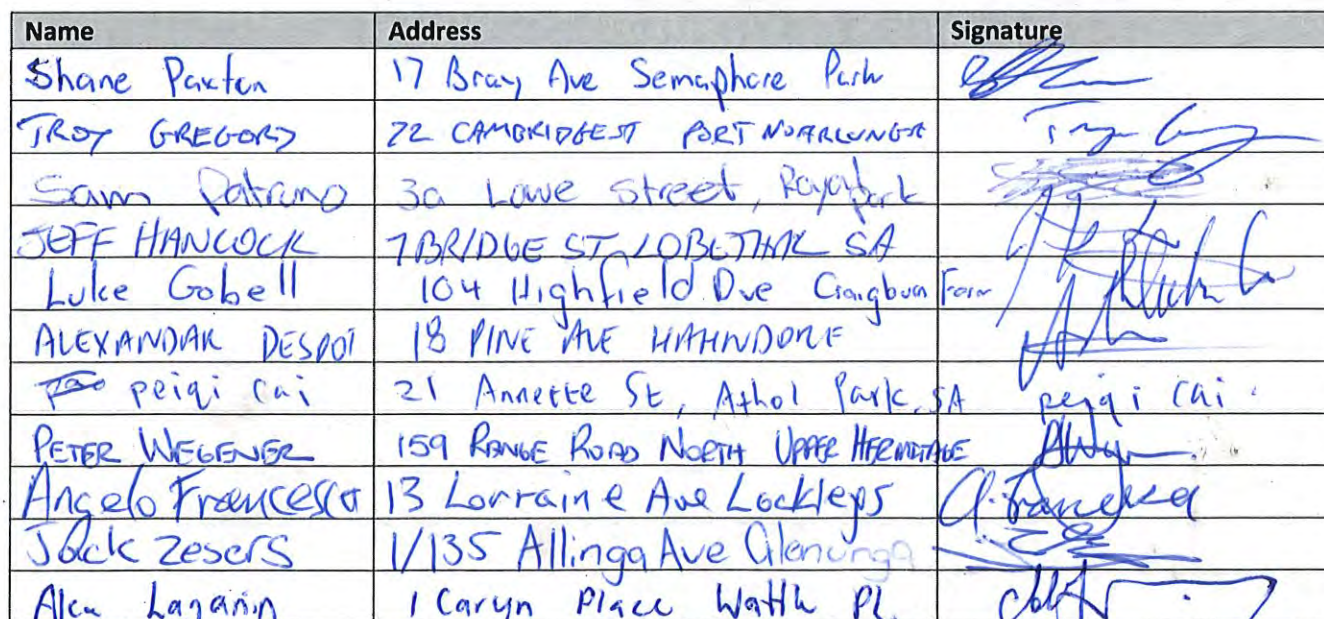 Name Address Signature
Shane Paxton 17 Bray Ave Semaphore Park
TROY GREGORY 22 CAMBRIDGE ST PORT NOARLUNGA
Sam Patrano 3a Lowe Street, Royal Park
JEFF HANCOCK 7 BRIDGE ST LOBETHAL SA
Luke Gobell 104 Highfield Dve Craigburn Farm
ALEXANDAR DESPOT 18 PINE AVE HAHNDORF
peiqi cai 21 Annette St, Athol Park, SA peiqi cai
PETER WEGENER 159 RANGE ROAD NORTH UPPER HERMITAGE
Angelo Francesca 13 Lorraine Ave Lockleys A. Francesca
Jack Zesers 1/135 Allinga Ave Glenunga
1 Caryn Place